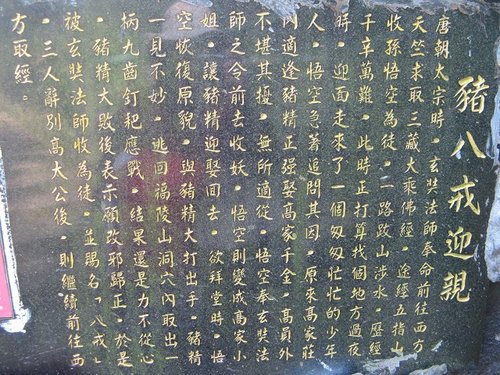 豬八戒迎親
唐朝太宗時。玄奘法師奉命前往西方
天竺求取三藏大乘佛經。途經五指山
收孫悟空為徒。一路跋山涉水。歷經
千辛萬難。此時正打算找個地方過夜
時。迎面走來了一個匆匆忙忙的少年
人。悟空急著追問其因。原來高家莊
內適逢豬精正强娶高家千金。高員外
不堪其擾。無所適從。悟空奉玄奘法
師之令前去收妖。悟空則變成高家小
姐。讓豬精迎娶回去。欲拜堂時。悟
空恢復原貌。與豬精大打出手。豬精
一見不妙。逃回福陵山洞穴內取出一
柄九齒釘耙應戰。結果還是力不從心
。豬精大敗後表示願改邪歸正。於是
被玄奘法師收為徒。並賜名「八戒」
。三人辭別高太公後。則繼續前往西
方取經。